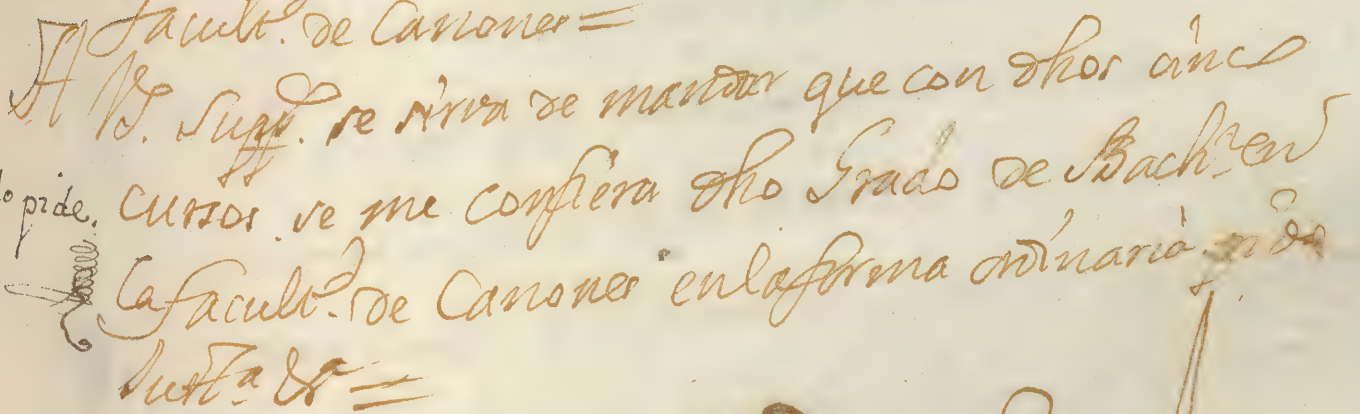 facult.ᵈ de Canones =
A V.S. Suppᶜᵒ. se sirva de mandar que con dhos cinco
cursos se me confiera dho Grado de Bach.ʳ en
lo pide.
la facult.ᵈ de Canones en la forma ordinaria
Just.ª &ª =